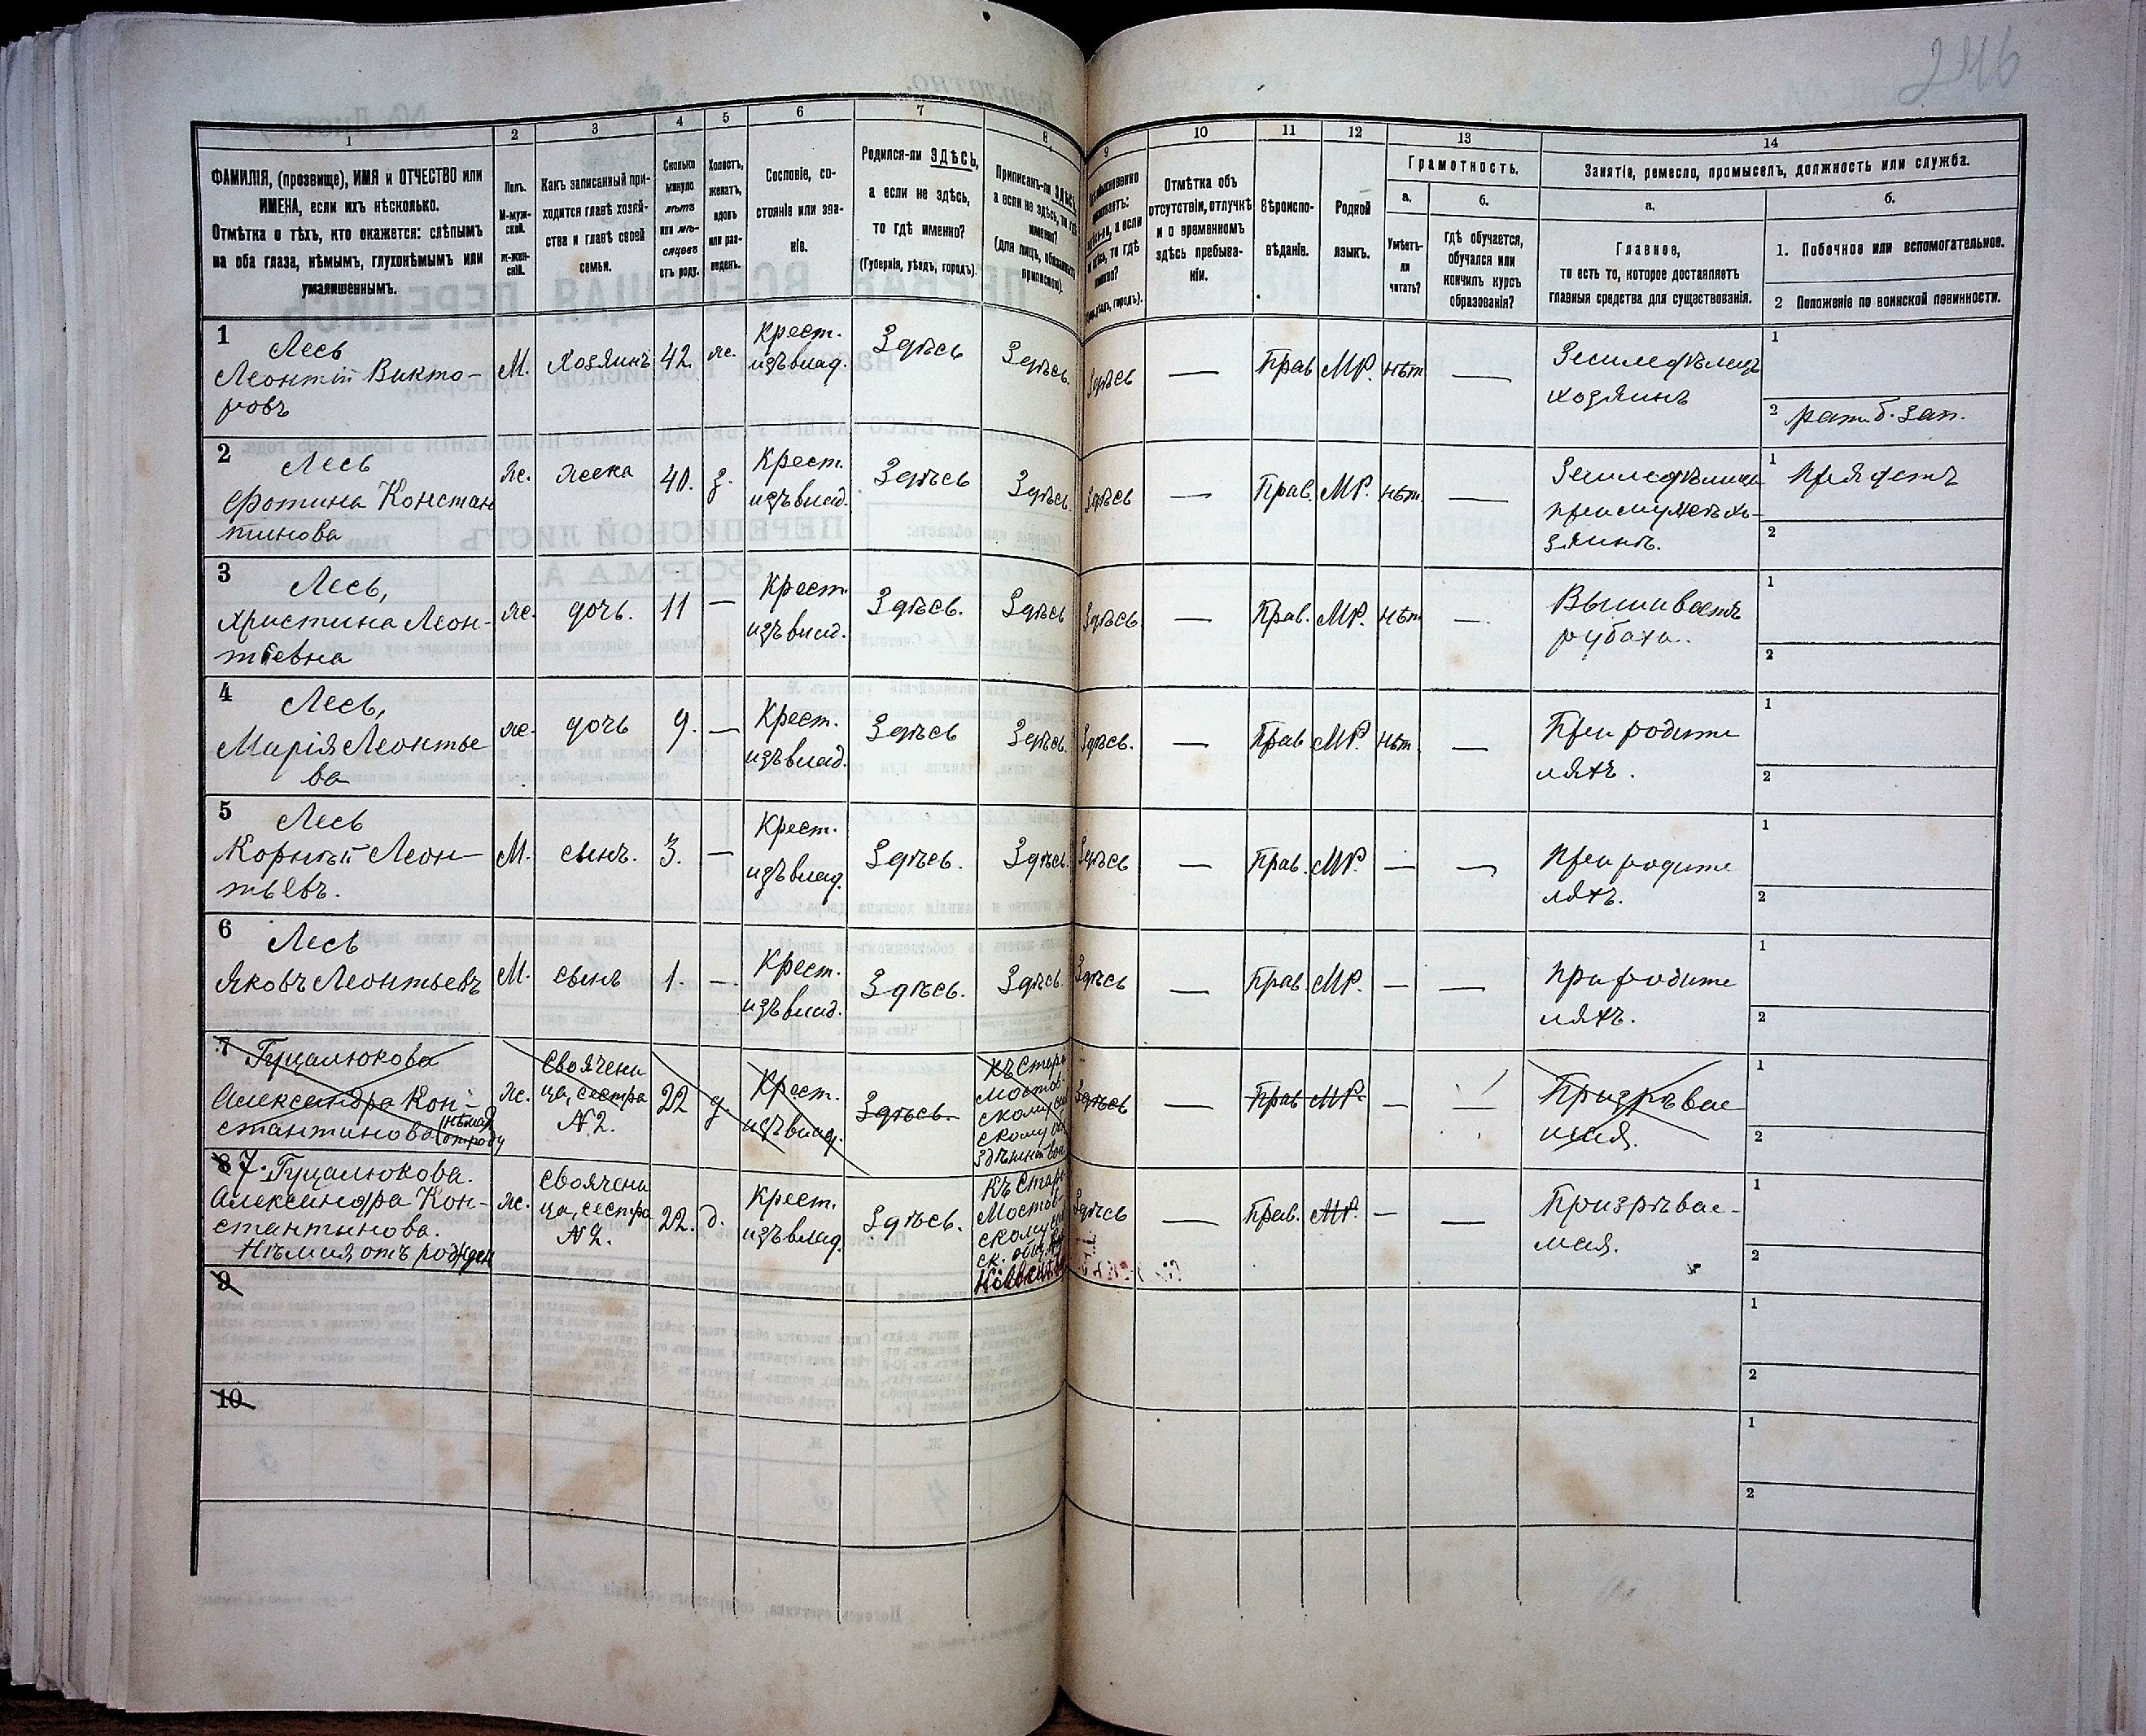 246
1 2 3 4 5 6 7 8 9 10 11 12 13 14
ФАМИЛІЯ, (прозвище), ИМЯ и ОТЧЕСТВО или
ИМЕНА, если ихъ нѣсколько.
Отмѣтка о тѣхъ, кто окажется: слѣпымъ
на оба глаза, нѣмымъ, глухонѣмымъ или
умалишеннымъ.
Полъ.
М-муж-
ской.
ж-жен-
скій.
Какъ записанный при-
ходится главѣ хозяй-
ства и главѣ своей
семьи.
Сколько
минуло
лѣтъ
или мѣ-
сяцевъ
отъ роду.
Холостъ,
женатъ,
вдовъ
или раз-
веденъ.
Сословіе, со-
стояніе или зва-
ніе.
Родился-ли ЗДѢСЬ,
а если не здѣсь,
то гдѣ именно?
(Губернія, уѣздъ, городъ).
Приписанъ-ли ЗДѢСЬ,
а если не здѣсь, то гдѣ
именно?
(для лицъ, обязанныхъ
припиской).
Отмѣтка объ
отсутствіи, отлучкѣ
и о временномъ
здѣсь пребыва-
ніи.
Вѣроиспо-
вѣданіе.
Родной
языкъ.
Грамотность.
а.
Умѣетъ-
ли
читать?
б.
гдѣ обучается,
обучался или
кончилъ курсъ
образованія?
Занятіе, ремесло, промыселъ, должность или служба.
а.
Главное,
то есть то, которое доставляетъ
главныя средства для существованія.
б.
1. Побочное или вспомогательное.
2 Положеніе по воинской повинности.
1
Лесь
Леонтій Викто-
ровъ
М.
Хозяинъ
42
ж.
Крест.
изъ влад.
Здѣсь
Здѣсь.
Здѣсь
—
Прав
МР.
нѣт
—
Земледѣлецъ
хозяинъ
1
2 рат. б. зап.
2
Лесь
Фотина Констан
тинова
ж.
жена
40.
з.
Крест.
изъ влад.
Здѣсь
Здѣсь
Здѣсь
—
Прав.
МР.
нѣт.
—
1 Прядетъ
2
3
Лесь,
Христина Леон-
тіевна
ж.
дочь.
11
—
Крест.
изъ влад.
Здѣсь.
Здѣсь
Здѣсь
—
Прав.
МР.
нѣт
—
Вышиваетъ
рубахи.
1
2
4
Лесь,
Марія Леонтье
ва
ж.
дочь
9.
—
Крест.
изъ влад.
Здѣсь
Здѣсь.
Здѣсь.
—
Прав
МР.
нѣт.
—
При родите
ляхъ.
1
2
5
Лесь
Корнѣй Леон-
тьевъ.
М.
сынъ.
3.
—
Крест.
изъ влад.
Здѣсь.
Здѣсь.
Здѣсь
—
Прав.
МР.
—
—
При родите
ляхъ.
1
2
6
Лесь
Яковъ Леонтьевъ
М.
сынъ
1.
—
Крест.
изъ влад.
Здѣсь.
Здѣсь.
Здѣсь
—
Прав.
МР.
—
—
При родите
ляхъ.
1
2
7 Гуцалюкова
Александра Кон-
стантинова
ж.
Свячени
ца, сестра
N 2.
22
д.
Крест.
изъ влад.
Здѣсь.
Къ Старо
мостов
скому
Здѣсь
—
Прав
МР.
—
—
Призрѣвае
мая.
1
2
8 7. Гуцалюкова.
Александра Кон-
стантинова.
Нѣмая отъ рожден
ж.
Своячени
ца, сестра
N 2.
22.
д.
Крест.
изъ влад.
Здѣсь.
Къ Старо
Мостов
скому
ск. общ.
Здѣсь
—
Прав.
МР.
—
—
Призрѣвае-
мая.
1
2
9
1
2
10
1
2